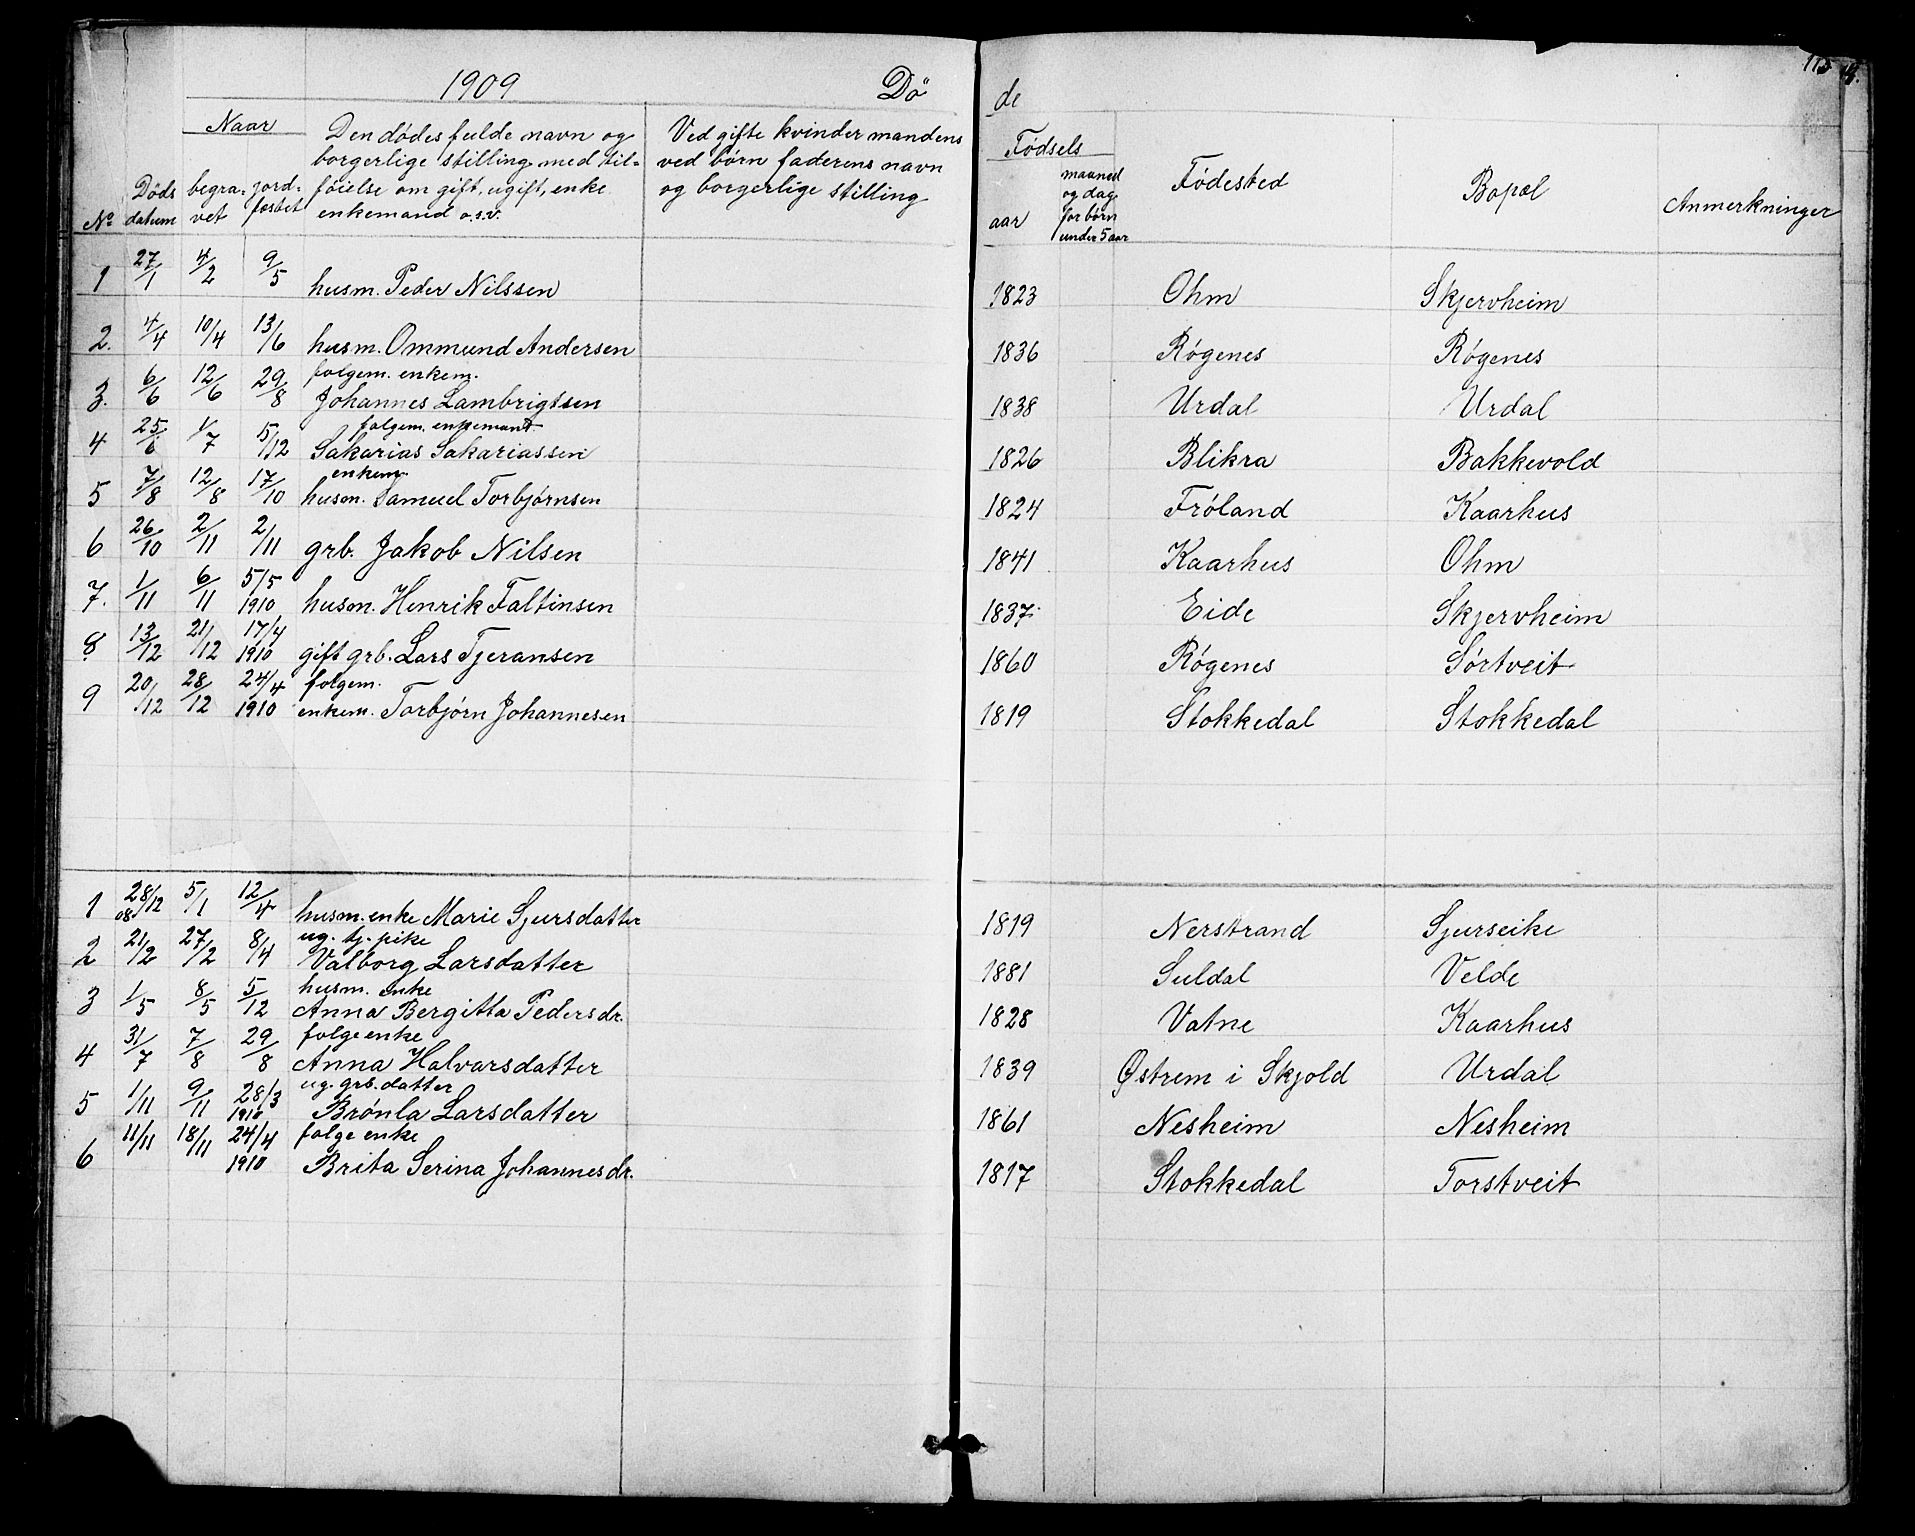 1909 Dö de 115
Naar
Den dødes fulde navn og
borgerlige stilling med til-
føielse om gift, ugift, enke
enkemand o.s.v.
Ved gifte kvinder mandens
ved børn faderens navn
og borgerlige stilling
No Døds datum begra- vet jord- fæstet
Fødsels
aar
maaned
og dag
for børn
under 5 aar
Fødested Bopæl Anmerkninger
1 27/1 4/2 9/5 husm. Peder Nilssen 1823 Ohm Skjervheim
2. 4/4 10/4 13/6 husm. Ommund Andersen 1836 Røgenes Røgenes
folgem. enkem.
3. 6/6 12/6 29/8 Johannes Lambrigtsen 1838 Urdal Urdal
folgem. enkemand
4 25/6 1/7 5/12 Sakarias Sakariassen 1826 Blikra Bakkevold
enkem.
5 7/8 12/8 17/10 husm. Samuel Torbjørnsen 1824 Frøland Kaarhus
6 26/10 2/11 2/11 grb. Jakob Nilsen 1841 Kaarhus Ohm
7. 1/11 6/11 5/5 1910 husm. Henrik Faltinsen 1837 Eide Skjervheim
8. 13/12 21/12 17/4 1910 gift grb. Lars Tjeransen 1860 Røgenes Sørtveit
folgem.
9 20/12 28/12 24/4 1910 enkem. Torbjørn Johannesen 1819 Stokkedal Stokkedal
1 28/12 08 5/1 12/4 husm. enke Marie Sjursdatter 1819 Nerstrand Sjurseike
ug. tj. pike
2 21/2 27/2 8/4 Valborg Larsdatter 1881 Suldal Velde
husm. enke
3 1/5 8/5 5/12 Anna Bergitta Pedersdr. 1828 Vatne Kaarhus
folge enke
4 31/7 7/8 29/8 Anna Halvarsdatter 1839 Østrem i Skjold Urdal
ug. grb. datter
5 1/11 9/11 28/3 1910 Brønla Larsdatter 1861 Nesheim Nesheim
folge enke
6 11/11 18/11 24/4 1910 Brita Serina Johannesdr. 1817 Stokkedal Torstveit